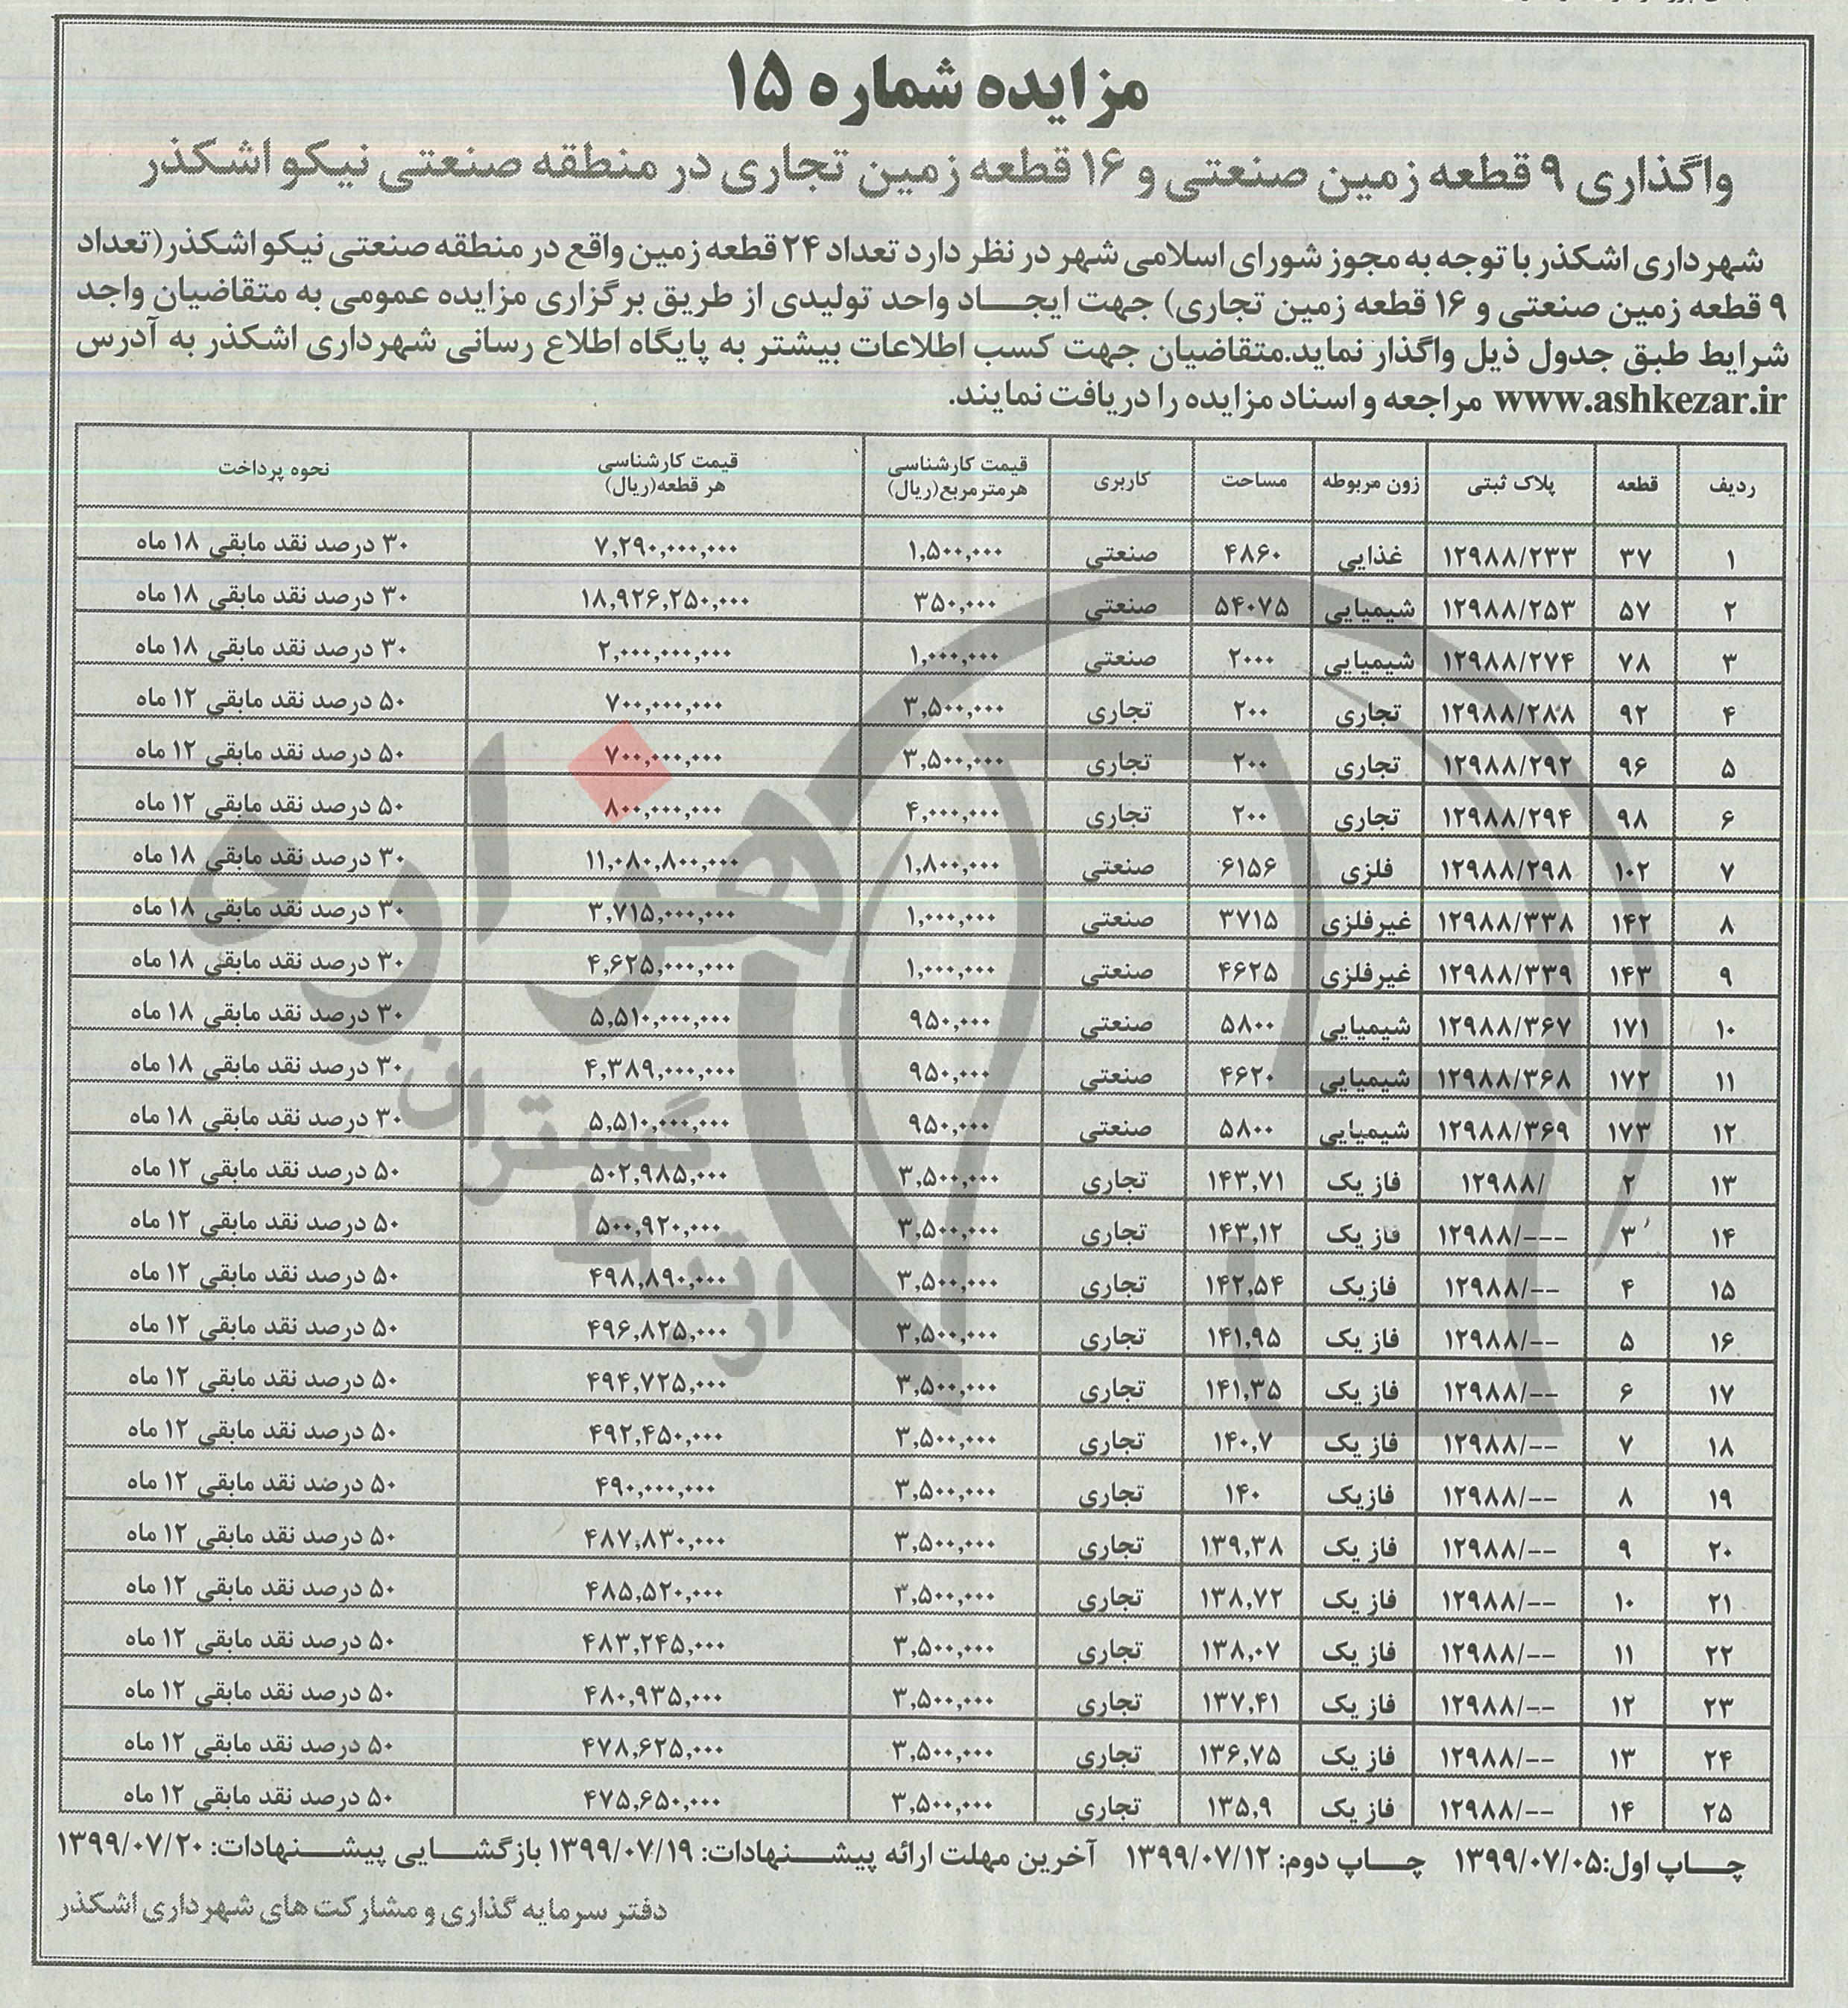 مزایده شماره ۱۵
واگذاری ۹ قطعه زمین صنعتی و ۱۶ قطعه زمین تجاری در منطقه صنعتی نیکو اشکذر
شهرداری اشکذر با توجه به مجوز شورای اسلامی شهر در نظر دارد تعداد ۲۴ قطعه زمین واقع در منطقه صنعتی نیکو اشکذر(تعداد
۹ قطعه زمین صنعتی و ۱۶ قطعه زمین تجاری) جهت ایجاد واحد تولیدی از طریق برگزاری مزایده عمومی به متقاضیان واجد
شرایط طبق جدول ذیل واگذار نماید.متقاضیان جهت کسب اطلاعات بیشتر به پایگاه اطلاع رسانی شهرداری اشکذر به آدرس
www.ashkezar.ir مراجعه و اسناد مزایده را دریافت نمایند.
ردیف قطعه پلاک ثبتی زون مربوطه مساحت کاربری قیمت کارشناسی هرمترمربع(ریال) قیمت کارشناسی هر قطعه(ریال) نحوه پرداخت
۱ ۳۷ ۱۲۹۸۸/۲۳۳ غذایی ۴۸۶۰ صنعتی ۱,۵۰۰,۰۰۰ ۷,۲۹۰,۰۰۰,۰۰۰ ۳۰ درصد نقد مابقی ۱۸ ماه
۲ ۵۷ ۱۲۹۸۸/۲۵۳ شیمیایی ۵۴۰۷۵ صنعتی ۳۵۰,۰۰۰ ۱۸,۹۲۶,۲۵۰,۰۰۰ ۳۰ درصد نقد مابقی ۱۸ ماه
۳ ۷۸ ۱۲۹۸۸/۲۷۴ شیمیایی ۲۰۰۰ صنعتی ۱,۰۰۰,۰۰۰ ۲,۰۰۰,۰۰۰,۰۰۰ ۳۰ درصد نقد مابقی ۱۸ ماه
۴ ۹۲ ۱۲۹۸۸/۲۸۸ تجاری ۲۰۰ تجاری ۳,۵۰۰,۰۰۰ ۷۰۰,۰۰۰,۰۰۰ ۵۰ درصد نقد مابقی ۱۲ ماه
۵ ۹۶ ۱۲۹۸۸/۲۹۲ تجاری ۲۰۰ تجاری ۳,۵۰۰,۰۰۰ ۷۰۰,۰۰۰,۰۰۰ ۵۰ درصد نقد مابقی ۱۲ ماه
۶ ۹۸ ۱۲۹۸۸/۲۹۴ تجاری ۲۰۰ تجاری ۴,۰۰۰,۰۰۰ ۸۰۰,۰۰۰,۰۰۰ ۵۰ درصد نقد مابقی ۱۲ ماه
۷ ۱۰۲ ۱۲۹۸۸/۲۹۸ فلزی ۶۱۵۶ صنعتی ۱,۸۰۰,۰۰۰ ۱۱,۰۸۰,۸۰۰,۰۰۰ ۳۰ درصد نقد مابقی ۱۸ ماه
۸ ۱۴۲ ۱۲۹۸۸/۳۳۸ غیرفلزی ۳۷۱۵ صنعتی ۱,۰۰۰,۰۰۰ ۳,۷۱۵,۰۰۰,۰۰۰ ۳۰ درصد نقد مابقی ۱۸ ماه
۹ ۱۴۳ ۱۲۹۸۸/۳۳۹ غیرفلزی ۴۶۲۵ صنعتی ۱,۰۰۰,۰۰۰ ۴,۶۲۵,۰۰۰,۰۰۰ ۳۰ درصد نقد مابقی ۱۸ ماه
۱۰ ۱۷۱ ۱۲۹۸۸/۳۶۷ شیمیایی ۵۸۰۰ صنعتی ۹۵۰,۰۰۰ ۵,۵۱۰,۰۰۰,۰۰۰ ۳۰ درصد نقد مابقی ۱۸ ماه
۱۱ ۱۷۲ ۱۲۹۸۸/۳۶۸ شیمیایی ۴۶۲۰ صنعتی ۹۵۰,۰۰۰ ۴,۳۸۹,۰۰۰,۰۰۰ ۳۰ درصد نقد مابقی ۱۸ ماه
۱۲ ۱۷۳ ۱۲۹۸۸/۳۶۹ شیمیایی ۵۸۰۰ صنعتی ۹۵۰,۰۰۰ ۵,۵۱۰,۰۰۰,۰۰۰ ۳۰ درصد نقد مابقی ۱۸ ماه
۱۳ ۲ ۱۲۹۸۸/ فاز یک ۱۴۳,۷۱ تجاری ۳,۵۰۰,۰۰۰ ۵۰۲,۹۸۵,۰۰۰ ۵۰ درصد نقد مابقی ۱۲ ماه
۱۴ ۳ ۱۲۹۸۸/--- فاز یک ۱۴۳,۱۲ تجاری ۳,۵۰۰,۰۰۰ ۵۰۰,۹۲۰,۰۰۰ ۵۰ درصد نقد مابقی ۱۲ ماه
۱۵ ۴ ۱۲۹۸۸/-- فازیک ۱۴۲,۵۴ تجاری ۳,۵۰۰,۰۰۰ ۴۹۸,۸۹۰,۰۰۰ ۵۰ درصد نقد مابقی ۱۲ ماه
۱۶ ۵ ۱۲۹۸۸/-- فاز یک ۱۴۱,۹۵ تجاری ۳,۵۰۰,۰۰۰ ۴۹۶,۸۲۵,۰۰۰ ۵۰ درصد نقد مابقی ۱۲ ماه
۱۷ ۶ ۱۲۹۸۸/-- فاز یک ۱۴۱,۳۵ تجاری ۳,۵۰۰,۰۰۰ ۴۹۴,۷۲۵,۰۰۰ ۵۰ درصد نقد مابقی ۱۲ ماه
۱۸ ۷ ۱۲۹۸۸/-- فاز یک ۱۴۰,۷ تجاری ۳,۵۰۰,۰۰۰ ۴۹۲,۴۵۰,۰۰۰ ۵۰ درصد نقد مابقی ۱۲ ماه
۱۹ ۸ ۱۲۹۸۸/-- فازیک ۱۴۰ تجاری ۳,۵۰۰,۰۰۰ ۴۹۰,۰۰۰,۰۰۰ ۵۰ درصد نقد مابقی ۱۲ ماه
۲۰ ۹ ۱۲۹۸۸/-- فاز یک ۱۳۹,۳۸ تجاری ۳,۵۰۰,۰۰۰ ۴۸۷,۸۳۰,۰۰۰ ۵۰ درصد نقد مابقی ۱۲ ماه
۲۱ ۱۰ ۱۲۹۸۸/-- فاز یک ۱۳۸,۷۲ تجاری ۳,۵۰۰,۰۰۰ ۴۸۵,۵۲۰,۰۰۰ ۵۰ درصد نقد مابقی ۱۲ ماه
۲۲ ۱۱ ۱۲۹۸۸/-- فاز یک ۱۳۸,۰۷ تجاری ۳,۵۰۰,۰۰۰ ۴۸۳,۲۴۵,۰۰۰ ۵۰ درصد نقد مابقی ۱۲ ماه
۲۳ ۱۲ ۱۲۹۸۸/-- فاز یک ۱۳۷,۴۱ تجاری ۳,۵۰۰,۰۰۰ ۴۸۰,۹۳۵,۰۰۰ ۵۰ درصد نقد مابقی ۱۲ ماه
۲۴ ۱۳ ۱۲۹۸۸/-- فاز یک ۱۳۶,۷۵ تجاری ۳,۵۰۰,۰۰۰ ۴۷۸,۶۲۵,۰۰۰ ۵۰ درصد نقد مابقی ۱۲ ماه
۲۵ ۱۴ ۱۲۹۸۸/-- فاز یک ۱۳۵,۹ تجاری ۳,۵۰۰,۰۰۰ ۴۷۵,۶۵۰,۰۰۰ ۵۰ درصد نقد مابقی ۱۲ ماه
چاپ اول:۱۳۹۹/۰۷/۰۵ چاپ دوم: ۱۳۹۹/۰۷/۱۲ آخرین مهلت ارائه پیشنهادات: ۱۳۹۹/۰۷/۱۹ بازگشایی پیشنهادات: ۱۳۹۹/۰۷/۲۰
دفتر سرمایه گذاری و مشارکت های شهرداری اشکذر
هزاره
گستران
ارتباط